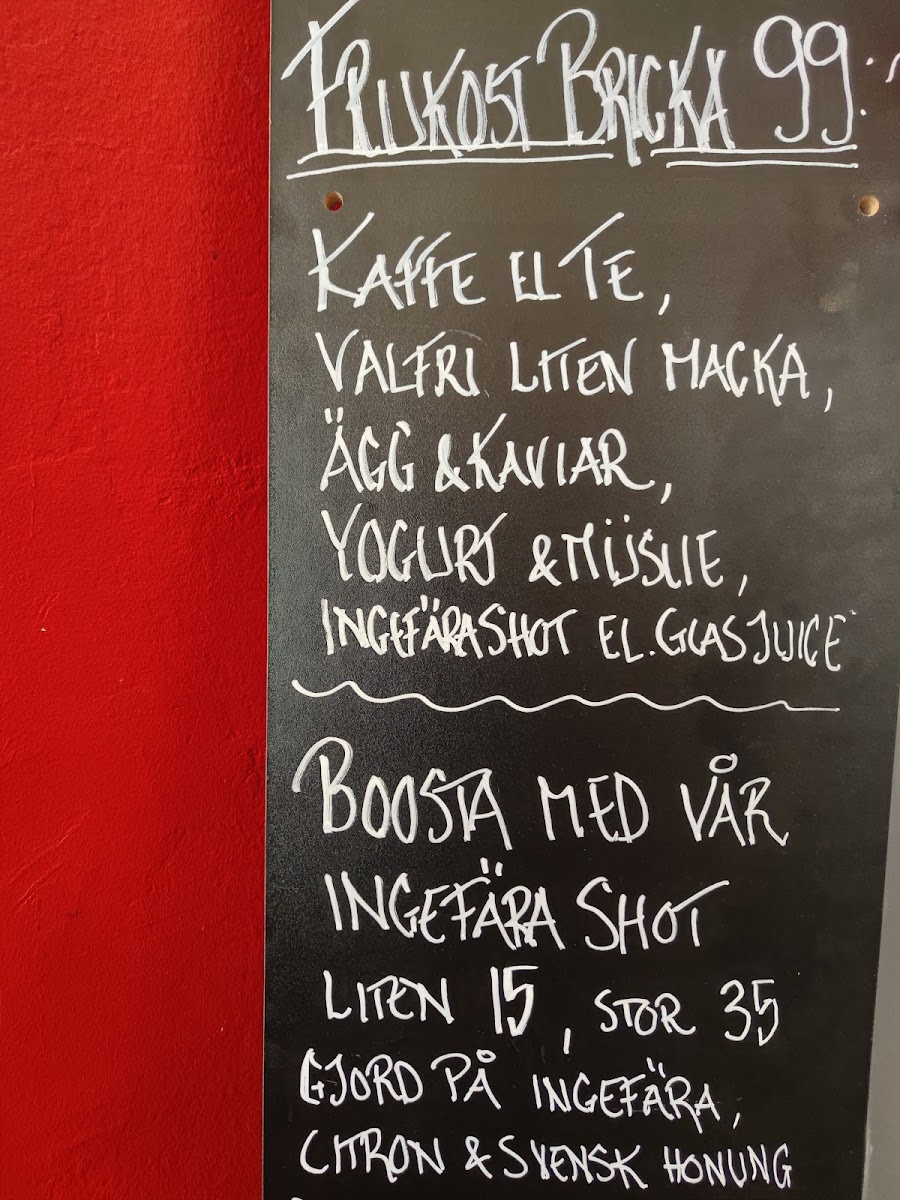 FRUKOST BRICKA 99:-
KAFFE EL TE,
VALFRI LITEN MACKA,
ÄGG & KAVIAR,
YOGURT & MÜSLIE,
INGEFÄRASHOT EL. GLAS JUICE
BOOSTA MED VÅR
INGEFÄRA SHOT
LITEN 15, STOR 35
GJORD PÅ INGEFÄRA,
CITRON & SVENSK HONUNG